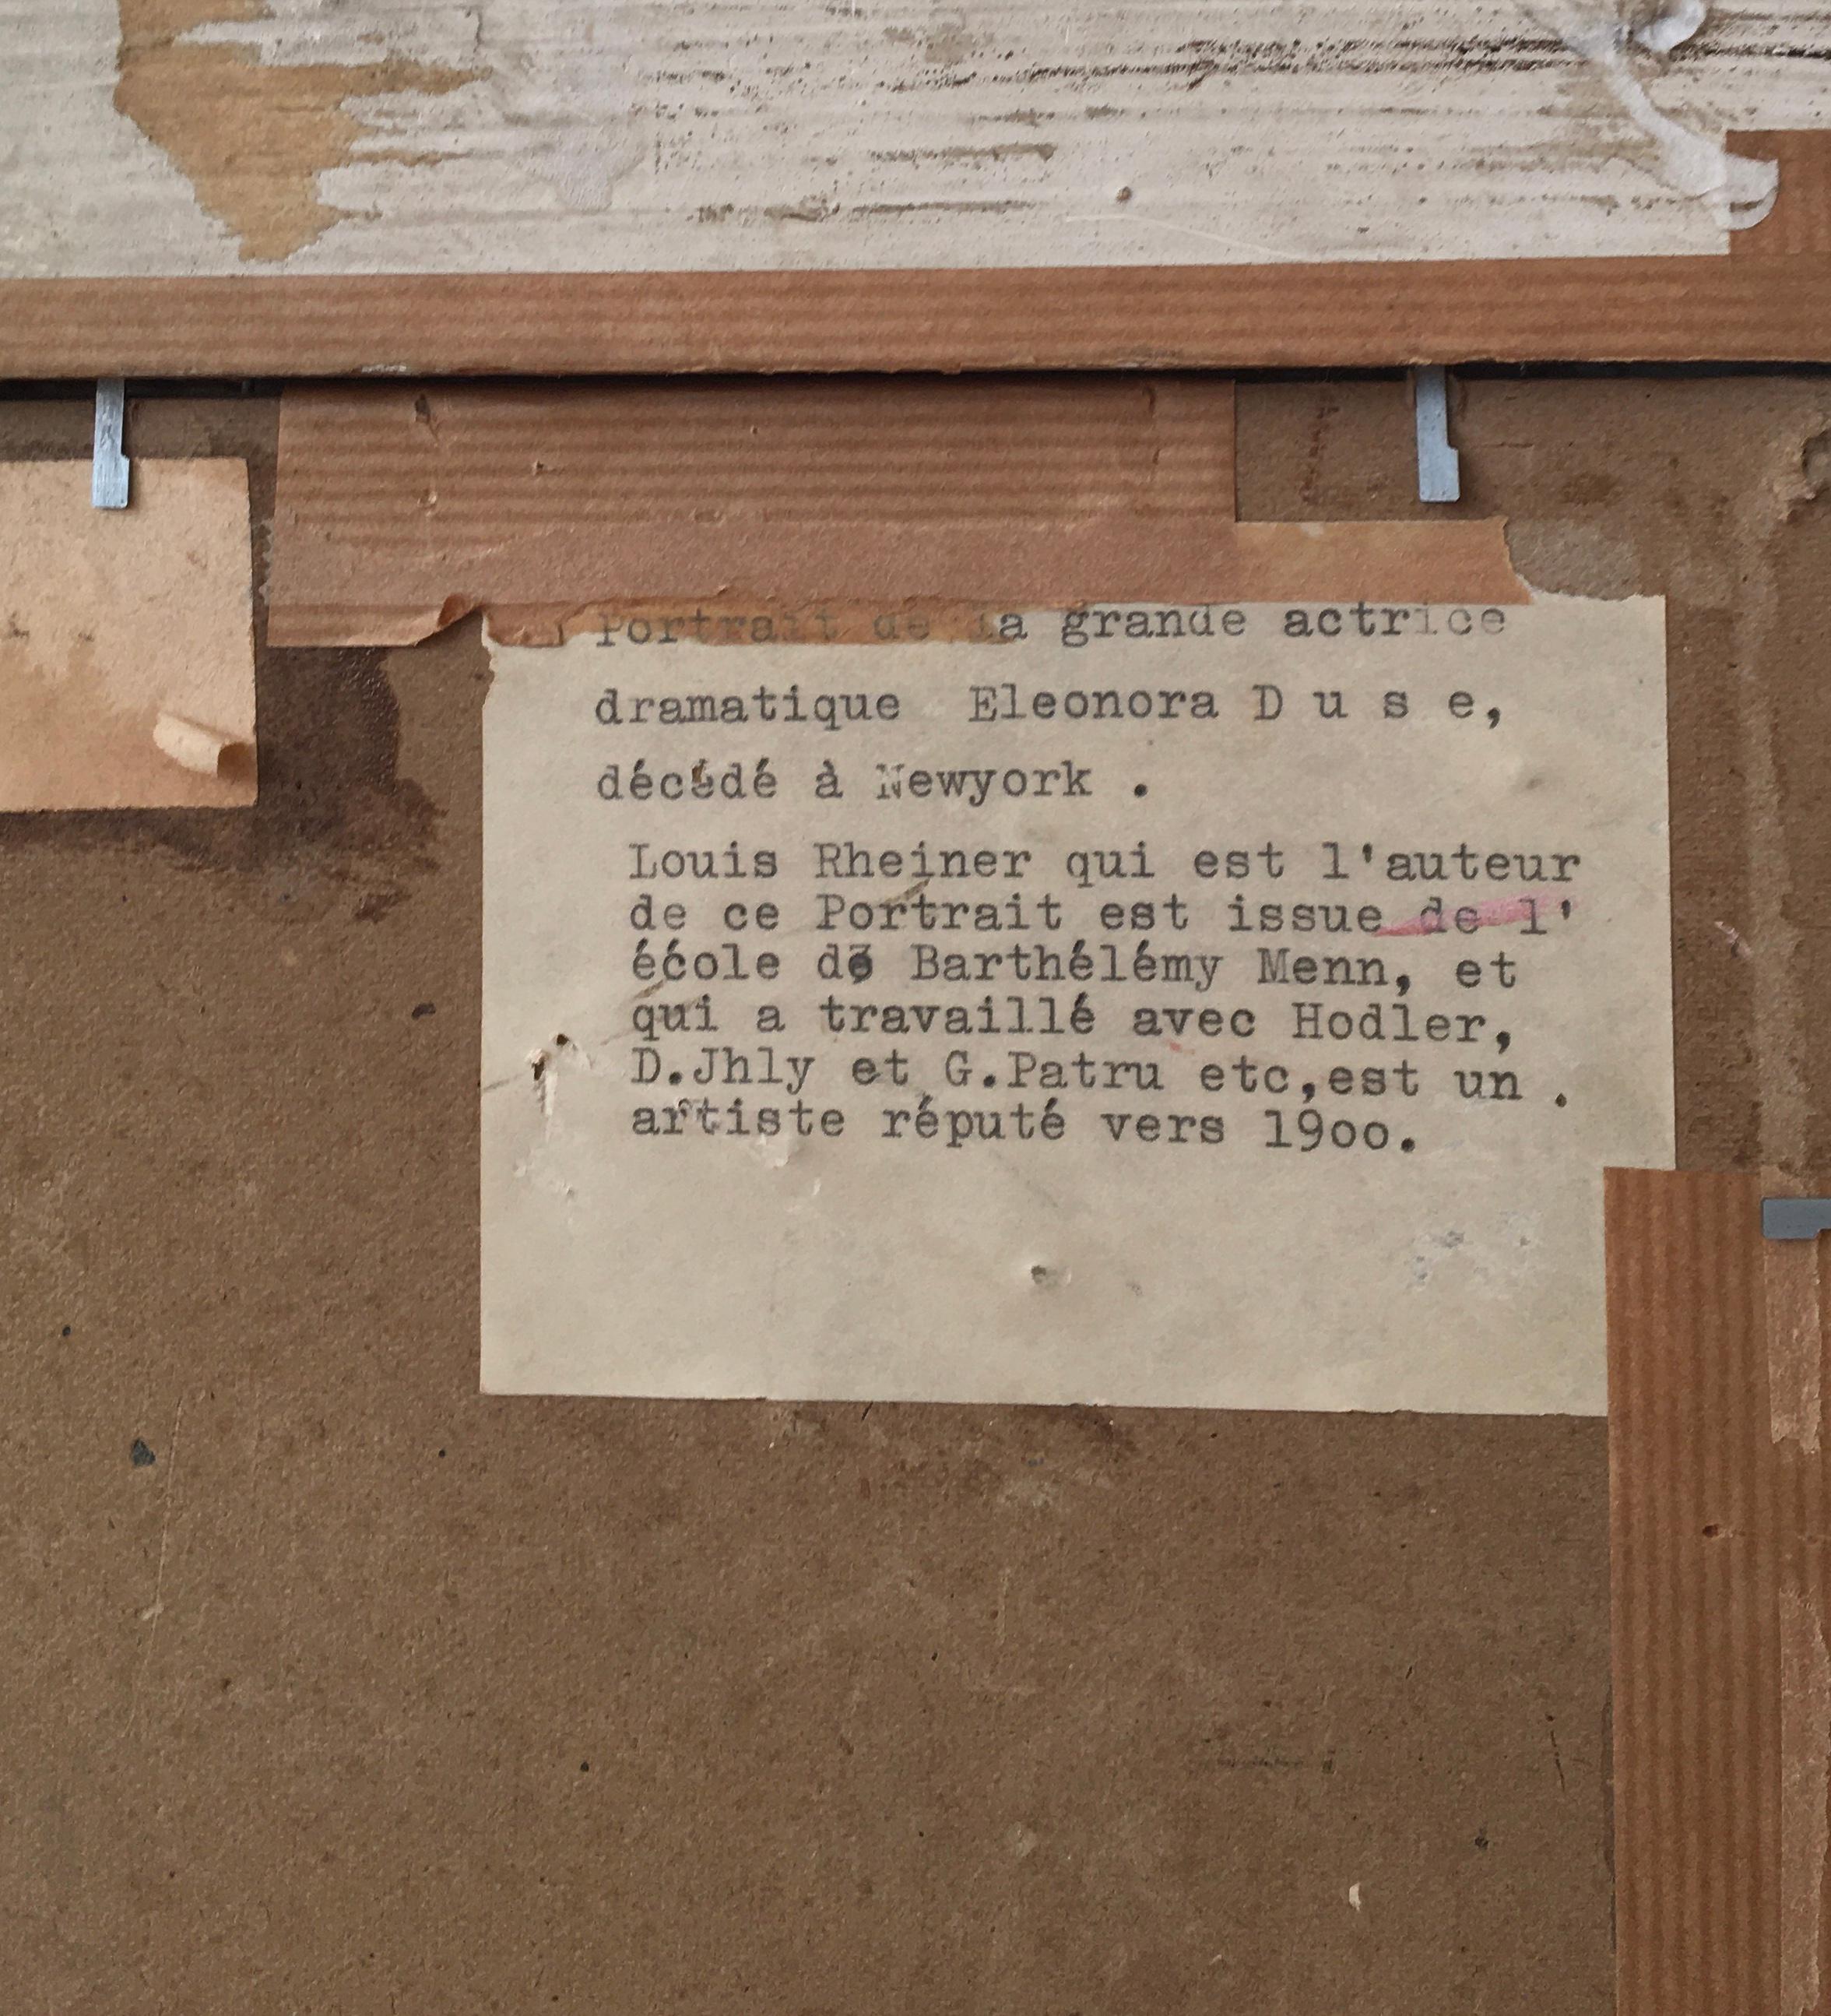 Portrait de la grande actrice
dramatique Eleonora D u s e,
décédé à Newyork .
Louis Rheiner qui est l'auteur
de ce Portrait est issue de l'
école de Barthélémy Menn, et
qui a travaillé avec Hodler,
D.Jhly et G.Patru etc,est un .
artiste réputé vers 19oo.